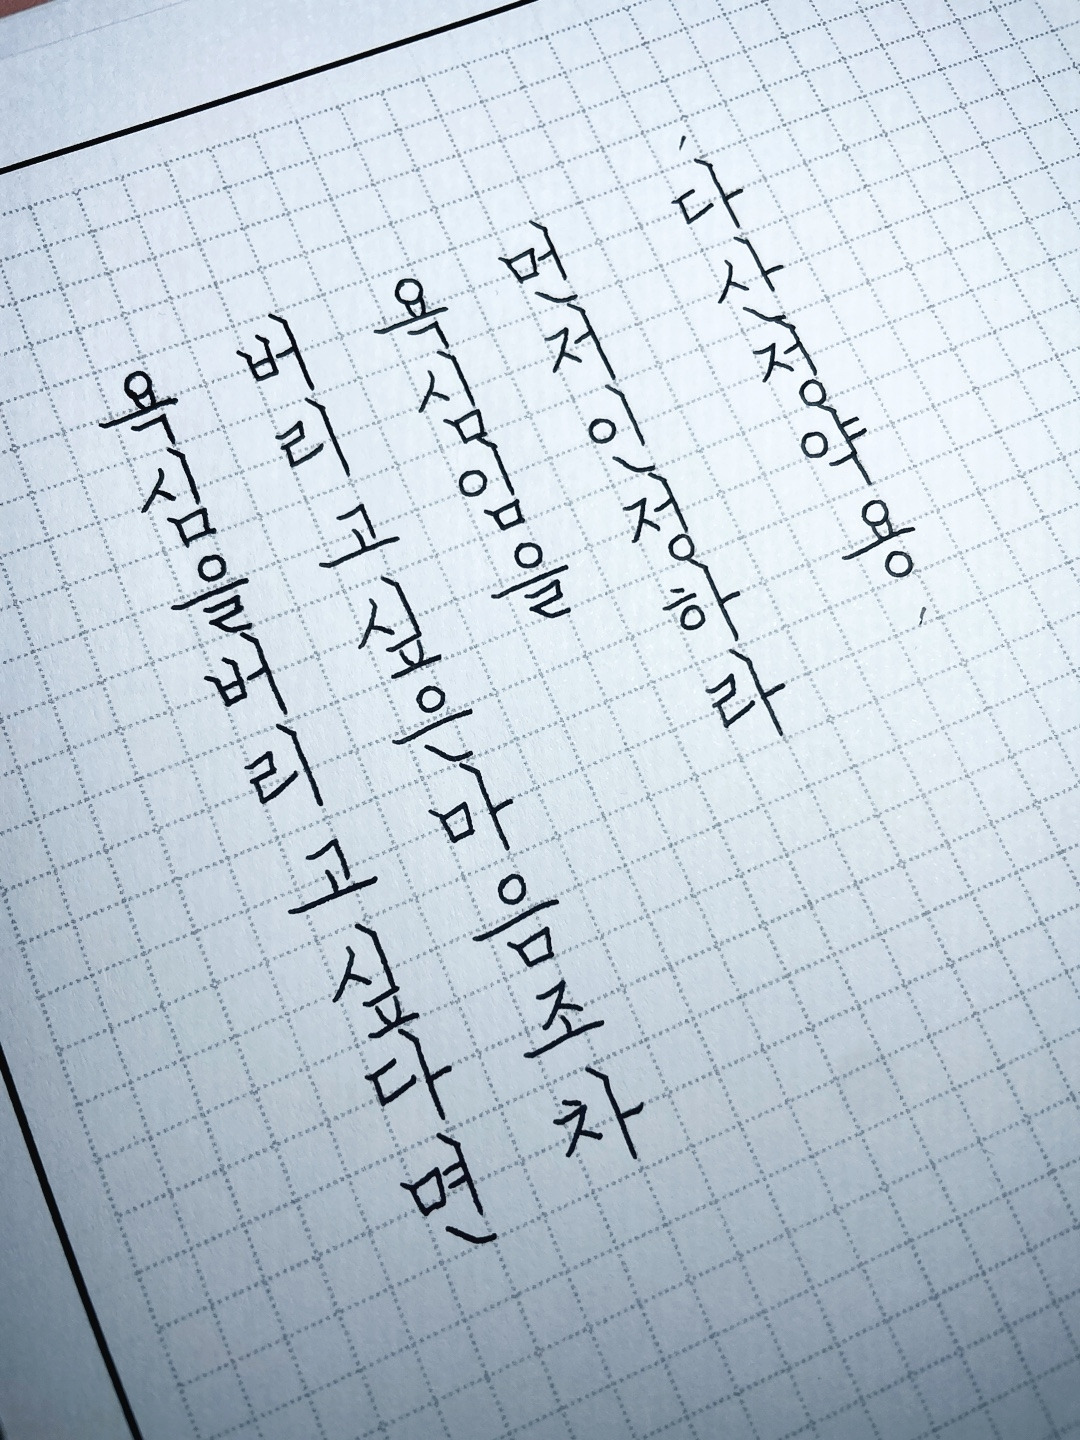 욕심을버리고싶다면
버리고싶은마음조차
욕심임을
먼저인정하라
'다산정약용'